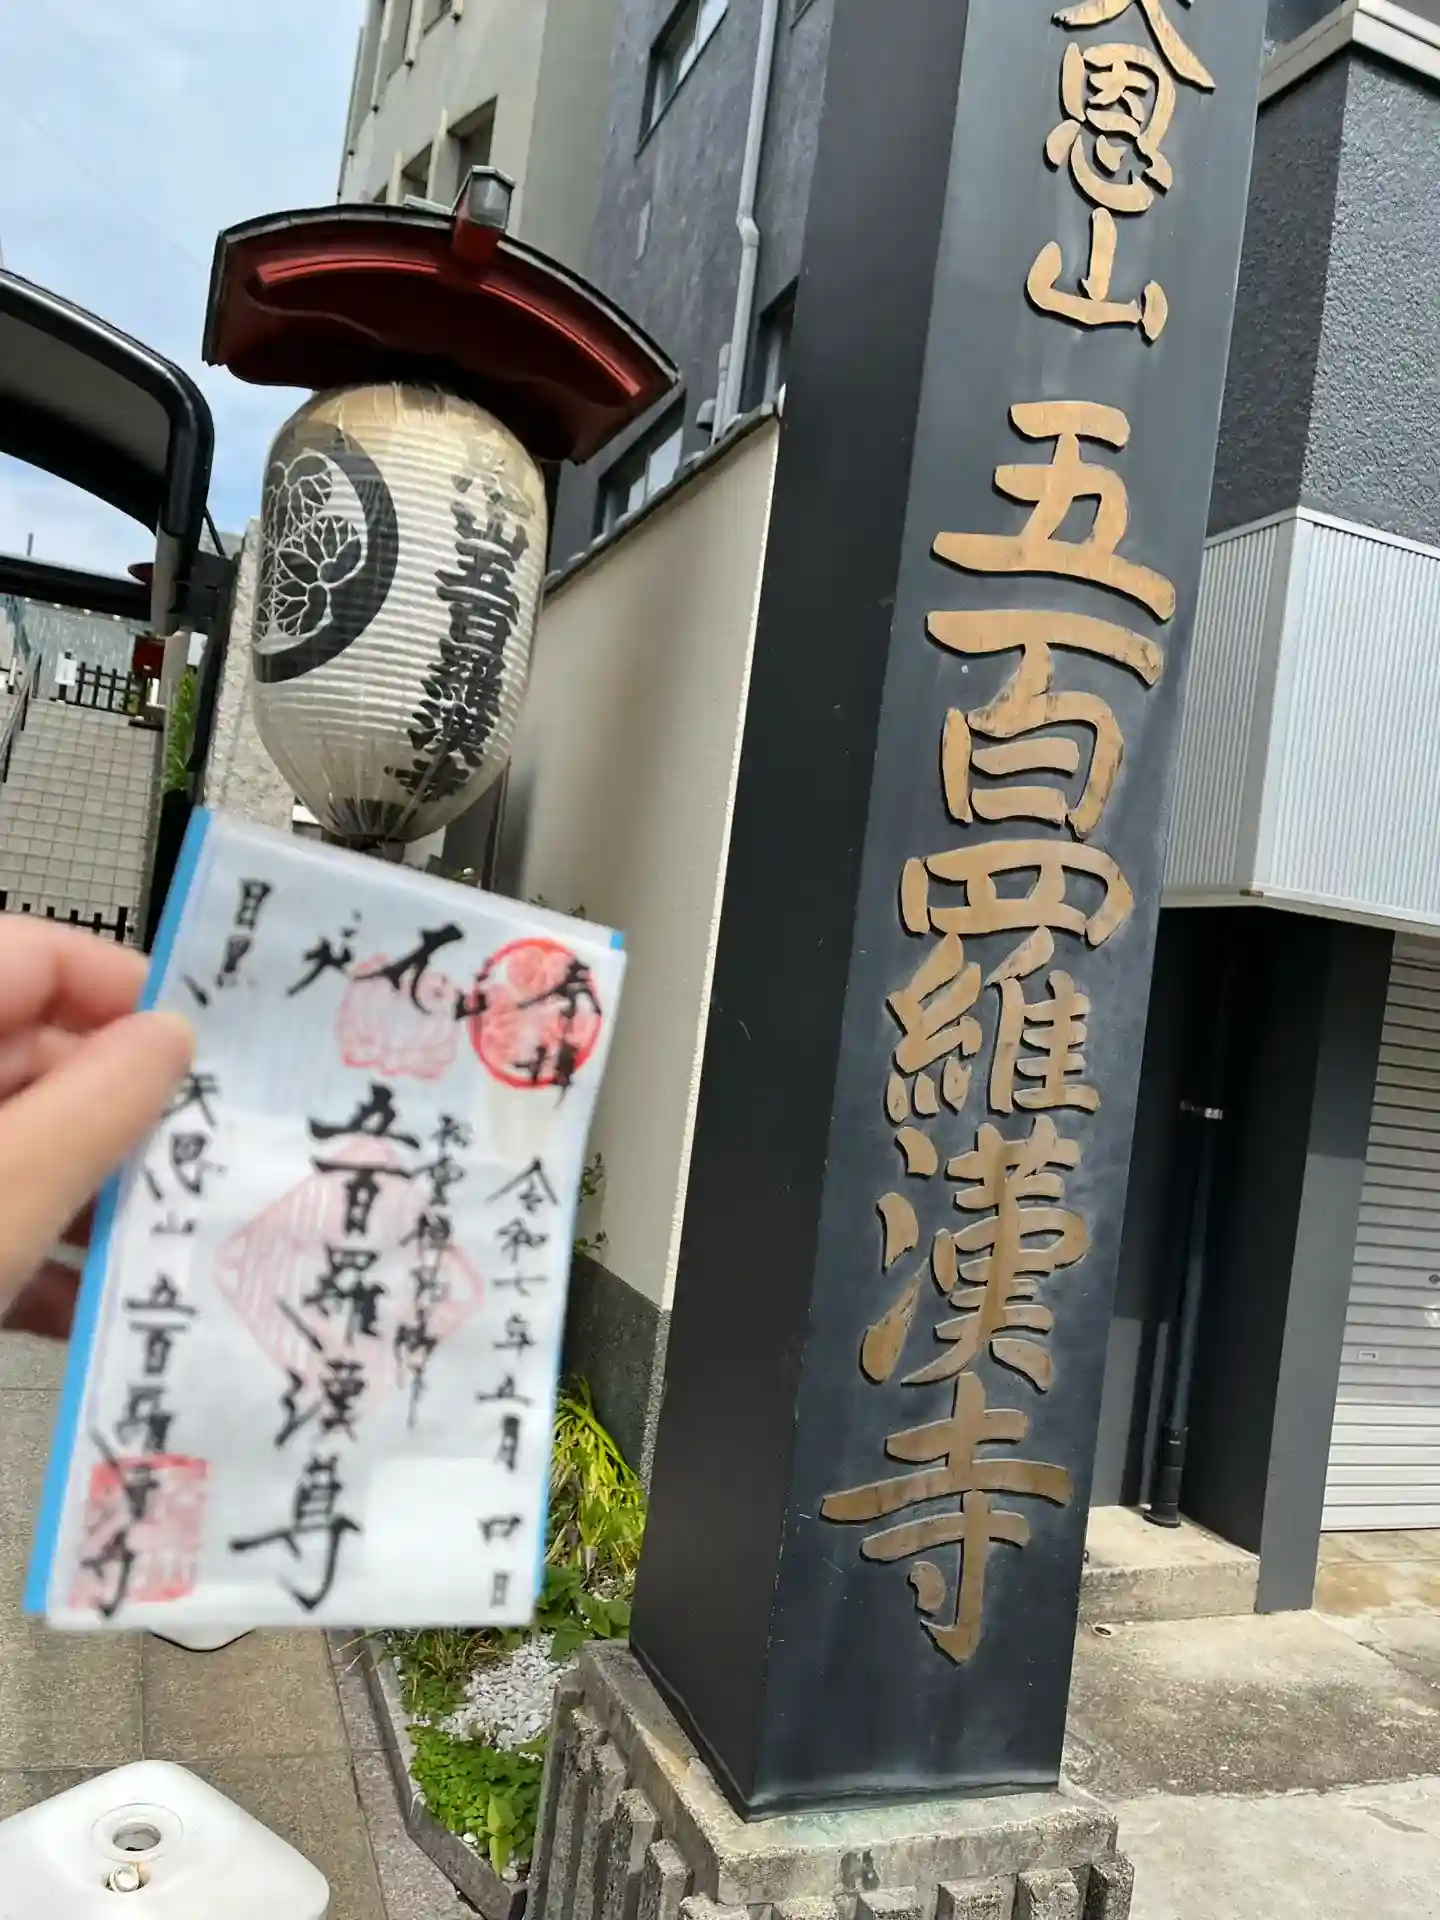 恩山
五百羅漢寺
山五百羅漢寺
奉拝
令和七年五月四日
五百羅漢尊
目黒
天恩山
五百羅漢寺